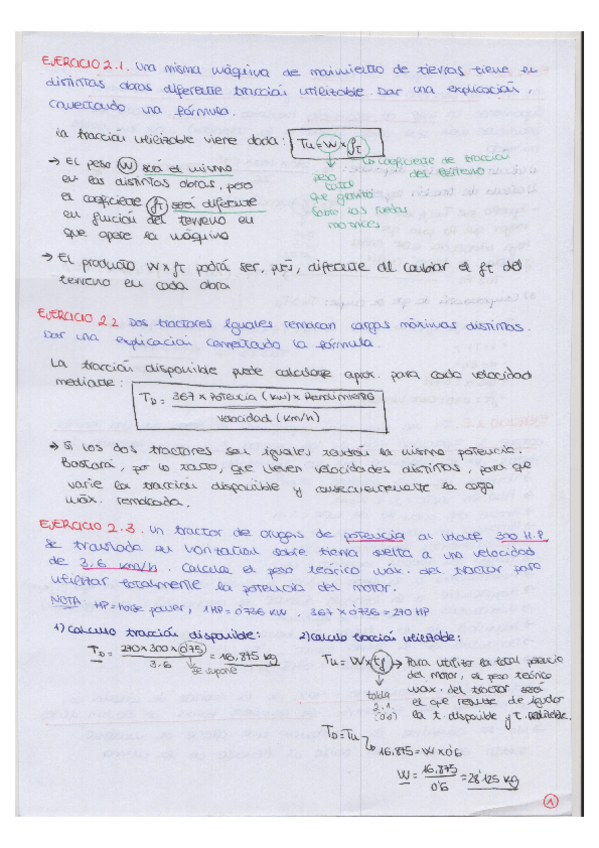 EJERCICIO 2.1. Una misma máquina de movimiento de tierras tiene en
distintas obras diferente tracción utilizable. Dar una explicación,
comentando una fórmula.
La tracción utilizable viene dada: Tu=W×ft
→ coeficiente de tracción
del terreno
peso
total
que gravita
sobre las ruedas
motrices
→ El peso (W) será el mismo
en las distintas obras, pero
el coeficiente (ft) será diferente
en función del terreno en
que opere la máquina
→ El producto W×ft podrá ser, pues, diferente al cambiar el ft del
terreno en cada obra
EJERCICIO 2.2 Dos tractores iguales remolcan cargas máximas distintas.
Dar una explicación comentando la fórmula.
La tracción disponible puede calcularse aprox. para cada velocidad
mediante: TD = 367 × Potencia (kW) × Rendimiento
Velocidad (km/h)
→ Si los dos tractores son iguales tendrán la misma potencia.
Bastará, por lo tanto, que lleven velocidades distintas, para que
varíe la tracción disponible y consecuentemente la carga
máx. remolcada.
EJERCICIO 2.3. Un tractor de orugas de potencia al volante 300 H.P.
se traslada en horizontal sobre tierra suelta a una velocidad
de 3,6 km/h. Calcula el peso teórico máx. del tractor para
utilizar totalmente la potencia del motor.
NOTA: HP=horse power, 1HP=0'736 kW, 367×0'736=270 HP
1) Calculo tracción disponible:
TD = 270×300×0'75 = 16.875 kg
3.6
se supone
2) Calculo tracción utilizable:
Tu=W×tf → Para utilizar la total potencia
del motor, el peso teórico
máx. del tractor será
el que resulte de igualar
la t. disponible y t. utilizable.
tabla
2.1.
(0'6)
TD=Tu
16.875=W×0'6
W = 16.875 = 28'125 kg
0'6
1